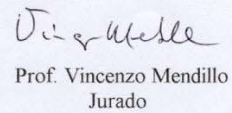 Prof. Vincenzo Mendillo
Jurado